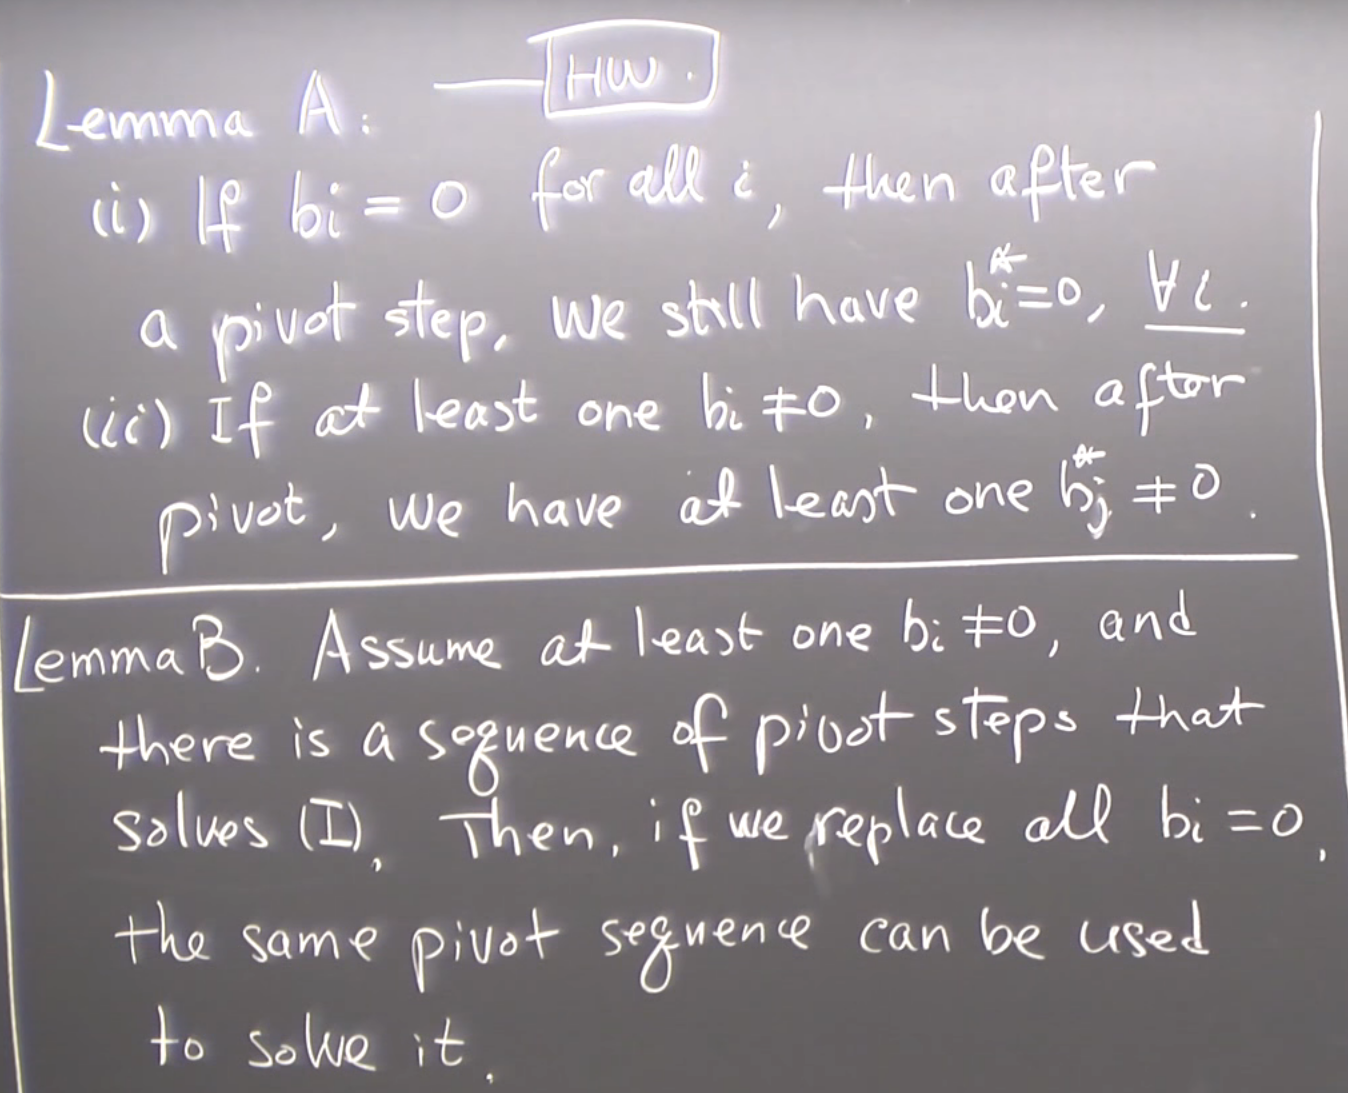 HW.
Lemma A:
(i) If bi = 0 for all i, then after
a pivot step, we still have bi*=0, ∀i.
(ii) If at least one bi ≠0, then after
pivot, we have at least one bj* ≠ 0.
Lemma B. Assume at least one bi ≠0, and
there is a sequence of pivot steps that
solves (I). Then, if we replace all bi =0,
the same pivot sequence can be used
to solve it.